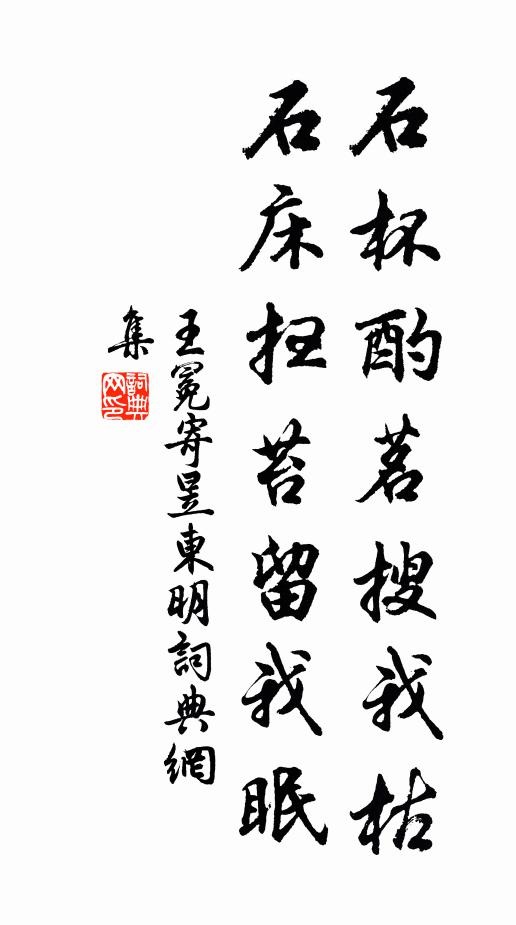 石杯酌茗搜我枯
石床扫苔留我眠
王冕寄昱東明詞典網
集
詞典
网印